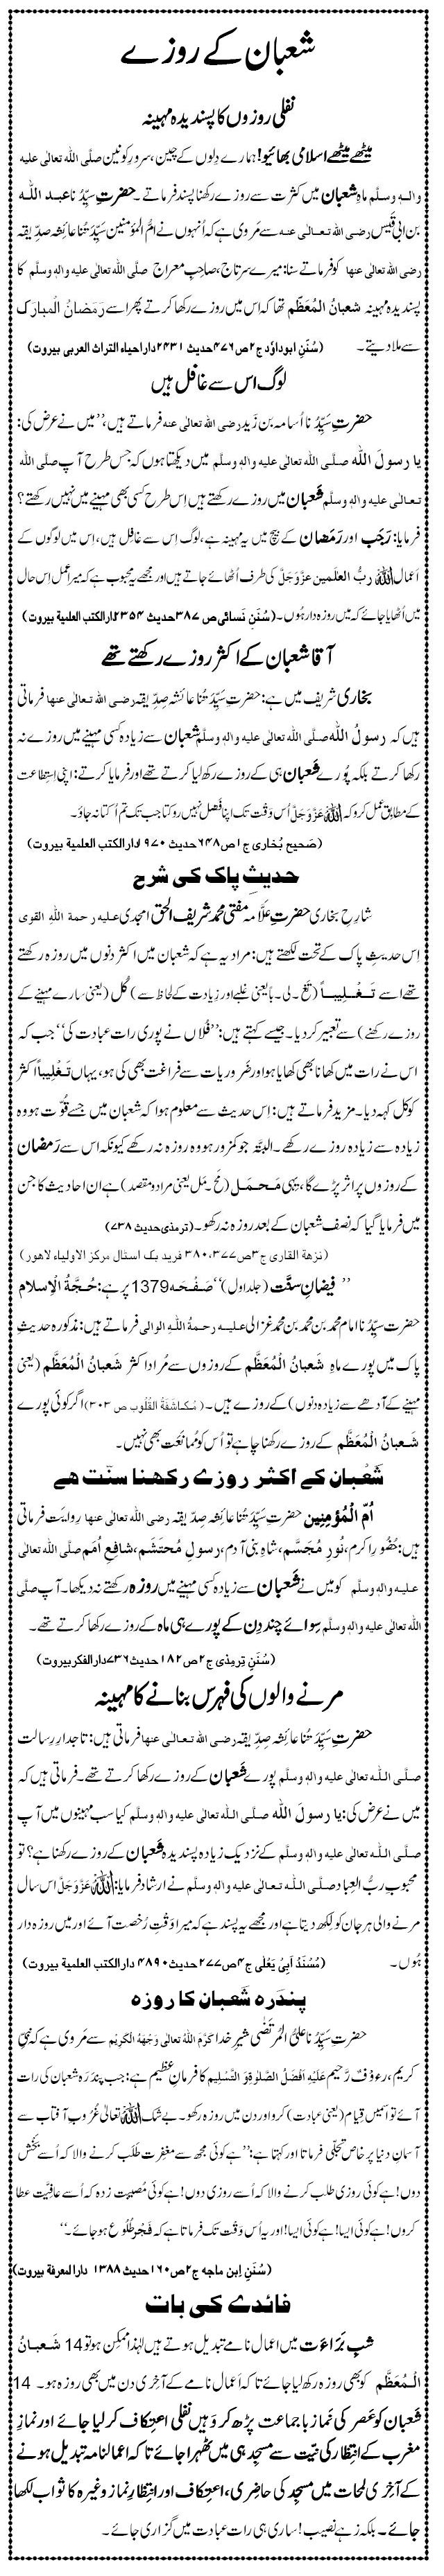 شعبان کے روزے
نفلی روزوں کا پسندیدہ مہینہ
میٹھے میٹھے اسلامی بھائیو! ہمارے دِلوں کے چین، سرورِ کونین صلَّی اللہ تعالٰی علیہ
والہٖ وسلَّم ماہِ شعبان میں کثرت سے روزے رکھنا پسند فرماتے۔ حضرتِ سیِّدُنا عبد اللہ
بن ابی قَیس رضی اللہ تعالٰی عنہ سے مَروی ہے کہ اُنہوں نے اُمُّ المُؤمنین سیِّدَتُنا عائشہ صدِّیقہ
رضی اللہ تعالٰی عنہا کو فرماتے سنا: میرے سرتاج، صاحبِ معراج صلَّی اللہ تعالٰی علیہ والہٖ وسلَّم کا
پسندیدہ مہینہ شعبانُ الْمُعَظَّم تھا کہ اس میں روزے رکھا کرتے پھر اسے رَمَضانُ الْمبارَک
سے ملا دیتے۔ (سُنَنِ ابو داوٗد ج۲ ص۴۷۶ حدیث ۲۴۳۱ دار احیاء التراث العربی بیروت)
لوگ اس سے غافل ہیں
حضرتِ سیِّدُنا اُسامہ بن زَید رضی اللہ تعالٰی عنہ فرماتے ہیں، ’’میں نے عرض کی:
یا رسولَ اللہ صلَّی اللہ تعالٰی علیہ والہٖ وسلَّم میں دیکھتا ہوں کہ جس طرح آپ صلَّی اللہ
تعالٰی علیہ والہٖ وسلَّم شَعبان میں روزے رکھتے ہیں اِس طرح کسی بھی مہینے میں نہیں رکھتے؟
فرمایا: رَجَب اور رَمَضان کے بیچ میں یہ مہینہ ہے، لوگ اِس سے غافل ہیں، اِس میں لوگوں کے
اَعمال اللہ ربُّ العٰلَمین عَزَّوَجَلَّ کی طرف اُٹھائے جاتے ہیں اور مجھے یہ محبوب ہے کہ میرا عمل اِس حال
میں اُٹھایا جائے کہ میں روزہ دار ہوں۔ (سُنَنِ نَسائی ص ۳۸۷ حدیث ۲۳۵۴ دارالکتب العلمیة بیروت)
آقا شعبان کے اکثر روزے رکھتے تھے
بخاری شریف میں ہے: حضرتِ سیِّدَتُنا عائشہ صِدِّیقہ رضی اللہ تعالٰی عنہا فرماتی
ہیں کہ رسولُ اللہ صلَّی اللہ تعالٰی علیہ والہٖ وسلَّم شعبان سے زیادہ کسی مہینے میں روزے نہ
رکھا کرتے بلکہ پورے شَعبان ہی کے روزے رکھ لیا کرتے تھے اور فرمایا کرتے: اپنی اِستِطاعت
کے مطابِق عمل کرو کہ اللہ عَزَّوَجَلَّ اُس وَقت تک اپنا فضل نہیں روکتا جب تک تم اُکتا نہ جاؤ۔
(صَحیح بُخاری ج۱ ص۶۴۸ حدیث ۱۹۷۰ دارالکتب العلمیة بیروت)
حدیثِ پاک کی شرح
شارِحِ بخاری حضرتِ علّامہ مفتی محمد شریف الحق امجدی علیہ رحمۃ اللہ القوی
اِس حدیثِ پاک کے تحت لکھتے ہیں: مراد یہ ہے کہ شعبان میں اکثر دنوں میں روزہ رکھتے
تھے اسے تَغْلِیباً (تَغ۔لی۔باً یعنی غلبے اور زیادت کے لحاظ سے) کُل (یعنی سارے مہینے کے
روزے رکھنے) سے تعبیر کر دیا۔ جیسے کہتے ہیں: ’’فُلاں نے پوری رات عبادت کی‘‘ جب کہ
اس نے رات میں کھانا بھی کھایا ہو اور ضَروریات سے فراغت بھی کی ہو، یہاں تَغْلِیباً اکثر
کو کل کہہ دیا۔ مزید فرماتے ہیں: اِس حدیث سے معلوم ہوا کہ شعبان میں جسے قُوّت ہو وہ
زیادہ سے زیادہ روزے رکھے۔ البتّہ جو کمزور ہو وہ روزہ نہ رکھے کیونکہ اس سے رَمضان
کے روزوں پر اثر پڑے گا، یہی مَحمَل (مَح۔مَل یعنی مراد و مقصد) ہے ان احادیث کا جن
میں فرمایا گیا کہ نصف شعبان کے بعد روزہ نہ رکھو۔ (ترمذی حدیث ۷۳۸)
(نزھۃ القاری ج۳ ص۳۷۷، ۳۸۰ فرید بک اسٹال مرکز الاولیاء لاھور)
’’فیضانِ سنّت (جلد اول)‘‘ صَفْحَہ 1379 پر ہے: حُجَّۃُ الْاِسلام
حضرتِ سیِّدُنا امام محمد بن محمد بن محمد غزالی علیہ رحمۃُ اللہِ الوالی فرماتے ہیں: مذکورہ حدیثِ
پاک میں پورے ماہِ شَعبانُ الْمُعَظَّم کے روزوں سے مُراد اکثر شعبانُ الْمُعَظَّم (یعنی
مہینے کے آدھے سے زیادہ دنوں) کے روزے ہیں۔ (مُکاشَفَۃُ القُلُوب ص ۳۰۳) اگر کوئی پورے
شَعبانُ الْمُعَظَّم کے روزے رکھنا چاہے تو اُس کو مُمانَعَت بھی نہیں۔
شَعْبان کے اکثر روزے رکھنا سنّت ھے
اُمُّ الْمُؤْمِنِین حضرتِ سیِّدَتُنا عائشہ صِدِّیقہ رضی اللہ تعالٰی عنہا رِوایت فرماتی
ہیں: حُضُورِ اکرم، نُورِ مُجَسَّم، شاہِ بنی آدم، رسولِ مُحتَشَم، شافِعِ اُمَم صلَّی اللہ تعالٰی
علیہ والہٖ وسلَّم کو میں نے شَعبان سے زیادہ کسی مہینے میں روزہ رکھتے نہ دیکھا۔ آپ صلَّی
اللہ تعالٰی علیہ والہٖ وسلَّم سِوائے چند دِن کے پورے ہی ماہ کے روزے رکھا کرتے تھے۔
(سُنَنِ تِرمِذی ج۲ ص ۱۸۲ حدیث ۷۳۶ دارالفکر بیروت)
مرنے والوں کی فہرِس بنانے کا مہینہ
حضرتِ سیِّدَتُنا عائشہ صِدِّیقہ رضی اللہ تعالٰی عنہا فرماتی ہیں: تاجدارِ رسالت
صلَّی اللہ تعالٰی علیہ والہٖ وسلَّم پورے شَعبان کے روزے رکھا کرتے تھے۔ فرماتی ہیں کہ
میں نے عرض کی: یا رسولَ اللہ صلَّی اللہ تعالٰی علیہ والہٖ وسلَّم کیا سب مہینوں میں آپ
صلَّی اللہ تعالٰی علیہ والہٖ وسلَّم کے نزدیک زیادہ پسندیدہ شَعبان کے روزے رکھنا ہے؟ تو
محبوبِ ربُّ العِباد صلَّی اللہ تعالٰی علیہ والہٖ وسلَّم نے ارشاد فرمایا: اللہ عَزَّوَجَلَّ اس سال
مرنے والی ہر جان کو لکھ دیتا ہے اور مجھے یہ پسند ہے کہ میرا وَقتِ رُخصت آئے اور میں روزہ دار
ہُوں۔ (مُسْنَد اَبِیْ یَعْلٰی ج۴ ص۲۷۷ حدیث ۴۸۹۰ دارالکتب العلمیة بیروت)
پندَرہ شَعبان کا روزہ
حضرتِ سیِّدُنا علیُّ المُرتَضٰی شیرِ خدا کَرَّمَ اللہُ تعالٰی وَجْہَہُ الْکَرِیْم سے مَروی ہے کہ نبیِّ
کریم، رءوفٌ رَّحیم عَلَیْہِ اَفْضَلُ الصَّلٰوۃِ وَ التَّسْلِیْم کا فرمانِ عظیم ہے: جب پندَرَہ شعبان کی رات
آئے تو اس میں قِیام (یعنی عبادت) کرو اور دن میں روزہ رکھو۔ بے شک اللہ تعالٰی غُروبِ آفتاب سے
آسمانِ دنیا پر خاص تجلّی فرماتا اور کہتا ہے: ’’ہے کوئی مجھ سے مغفِرت طلب کرنے والا کہ اُسے بَخش
دوں! ہے کوئی روزی طلب کرنے والا کہ اُسے روزی دوں! ہے کوئی مُصیبت زدہ کہ اُسے عافِیَّت عطا
کروں! ہے کوئی ایسا! ہے کوئی ایسا! اور یہ اُس وَقت تک فرماتا ہے کہ فَجْر طُلُوع ہو جائے۔‘‘
(سُنَنِ اِبن ماجہ ج۲ ص۱۶۰ حدیث ۱۳۸۸ دارالمعرفة بیروت)
فائدے کی بات
شبِ بَرَاءَت میں اعمال نامے تبدیل ہوتے ہیں لہٰذا ممکِن ہو تو 14 شَعبانُ
الْمُعَظَّم کو بھی روزہ رکھ لیا جائے تاکہ اَعمال نامے کے آخِری دن میں بھی روزہ ہو۔ 14
شَعبان کو عَصر کی نَماز با جماعت پڑھ کر وہیں نفلی اعتِکاف کر لیا جائے اور نَمازِ
مغرِب کے انتظار کی نیّت سے مسجِد ہی میں ٹھہرا جائے تاکہ اعمالنامہ تبدیل ہونے
کے آخِری لمحات میں مسجِد کی حاضِری، اعتِکاف اور انتِظارِ نَماز وغیرہ کا ثواب لکھا
جائے۔ بلکہ زہے نصیب! ساری ہی رات عبادت میں گزاری جائے۔